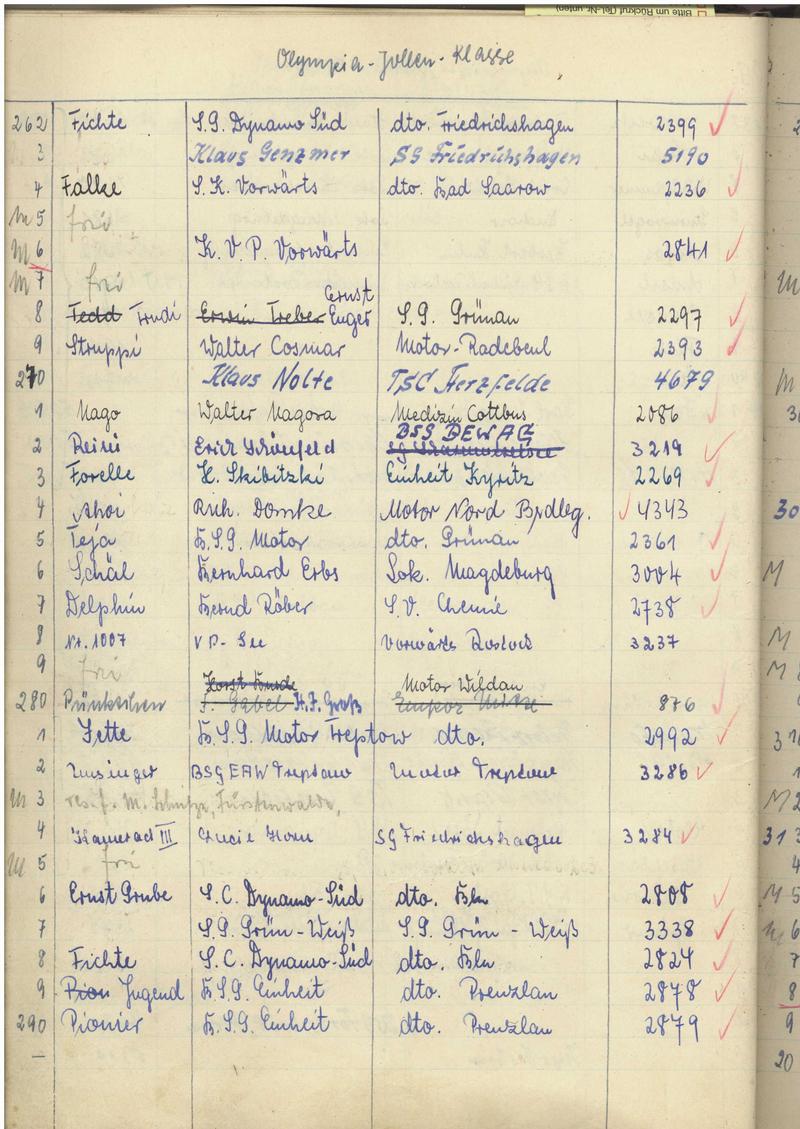 Bitte um Rückruf (Tel.-Nr. unten)
Olympia-Jollen-Klasse
262 Fichte S.G. Dynamo Süd dto. Friedrichshagen 2399
3 Klaus Genzmer SG Friedrichshagen 5190
4 Falke S.K. Vorwärts dto. Bad Saarow 2236
M 5 frei
M 6 K.V.P. Vorwärts 2841
M 7 frei
Ernst
8 Tedd Trudi Erwin Treber Euger S.G. Grünau 2297
9 Struppi Walter Cosmar Motor-Radebeul 2393
270 Klaus Nolte TSC Herzfelde 4679
1 Nago Walter Nagora Medizin Cottbus 2086
BSG DEWAG
2 Reini Erich Schönfeld 3219
3 Forelle H. Skibitzki Einheit Kyritz 2269
4 Ahoi Rich. Domke Motor Nord Brdbg. 4343
5 Teja B.S.G. Motor dto. Grünau 2361
6 Schäl Bernhard Erbs Lok. Magdeburg 3004
7 Delphin Bernd Röber S.V. Chemie 2738
8 Nr. 1007 VP-See Vorwärts Rostock 3237
9 frei
Motor Wildau
280 Pünktchen F. Gabel H.F. Groß 876
1 Jette B.S.G. Motor Treptow dto. 2992
2 BSG EAW Treptow Motor Treptow 3286
M 3 res. f. M. Schulze, Fürstenwalde,
4 Kamerad III Lucie Horn SG Friedrichshagen 3284
M 5 frei
6 Ernst Grube S.C. Dynamo-Süd dto. Bln 2808
7 S.G. Grün-Weiß S.G. Grün-Weiß 3338
8 Fichte S.C. Dynamo-Süd dto. Bln 2824
9 Pion Jugend B.S.G. Einheit dto. Prenzlau 2878
290 Pionier B.S.G. Einheit dto. Prenzlau 2879
–